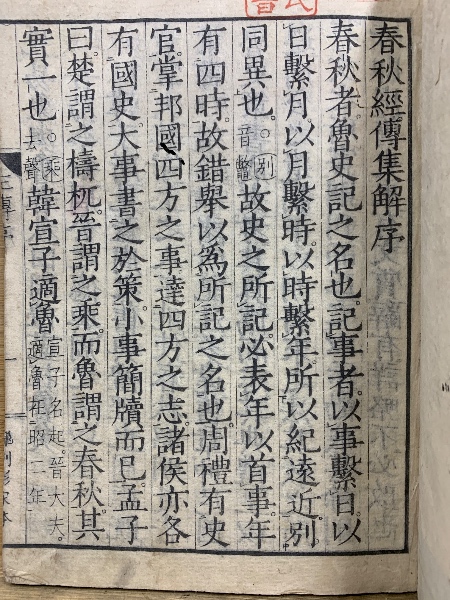 春秋經傳集解序
春秋者。魯史記之名也。記事者。以事繫日。以
日繫月。以月繫時。以時繫年。所以紀遠近。別
同異也。○別音鼈故史之所記。必表年以首事。年
有四時。故錯舉以為所記之名也。周禮有史
官。掌邦國四方之事。達四方之志。諸侯亦各
有國史。大事書之於策。小事簡牘而已。孟子
曰。楚謂之檮杌。晉謂之乘。而魯謂之春秋。其
實一也。○乘去聲韓宣子適魯宣子名起。晉大夫。適魯在昭二年
一